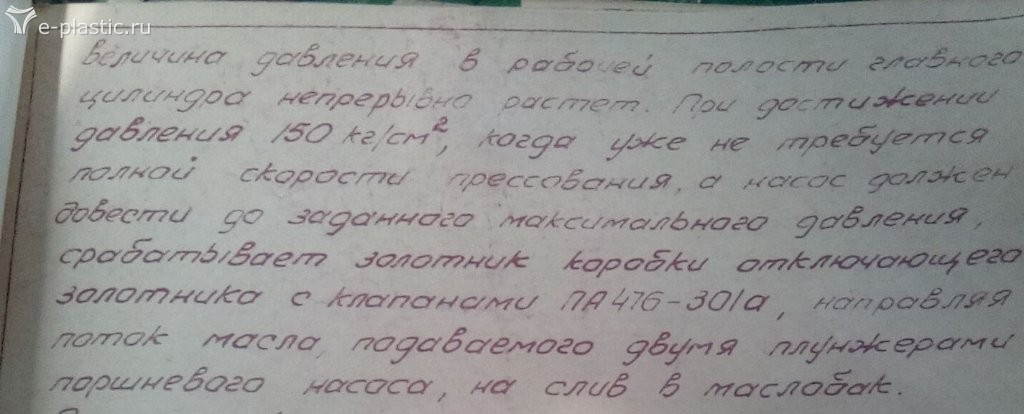 e-plastic.ru
величина давления в рабочей полости главного
цилиндра непрерывно растет. При достижении
давления 150 кг/см², когда уже не требуется
полной скорости прессования, а насос должен
довести до заданного максимального давления,
срабатывает золотник коробки отключающего
золотника с клапанами ПА476-301а, направляя
поток масла, подаваемого двумя плунжерами
поршневого насоса, на слив в маслобак.